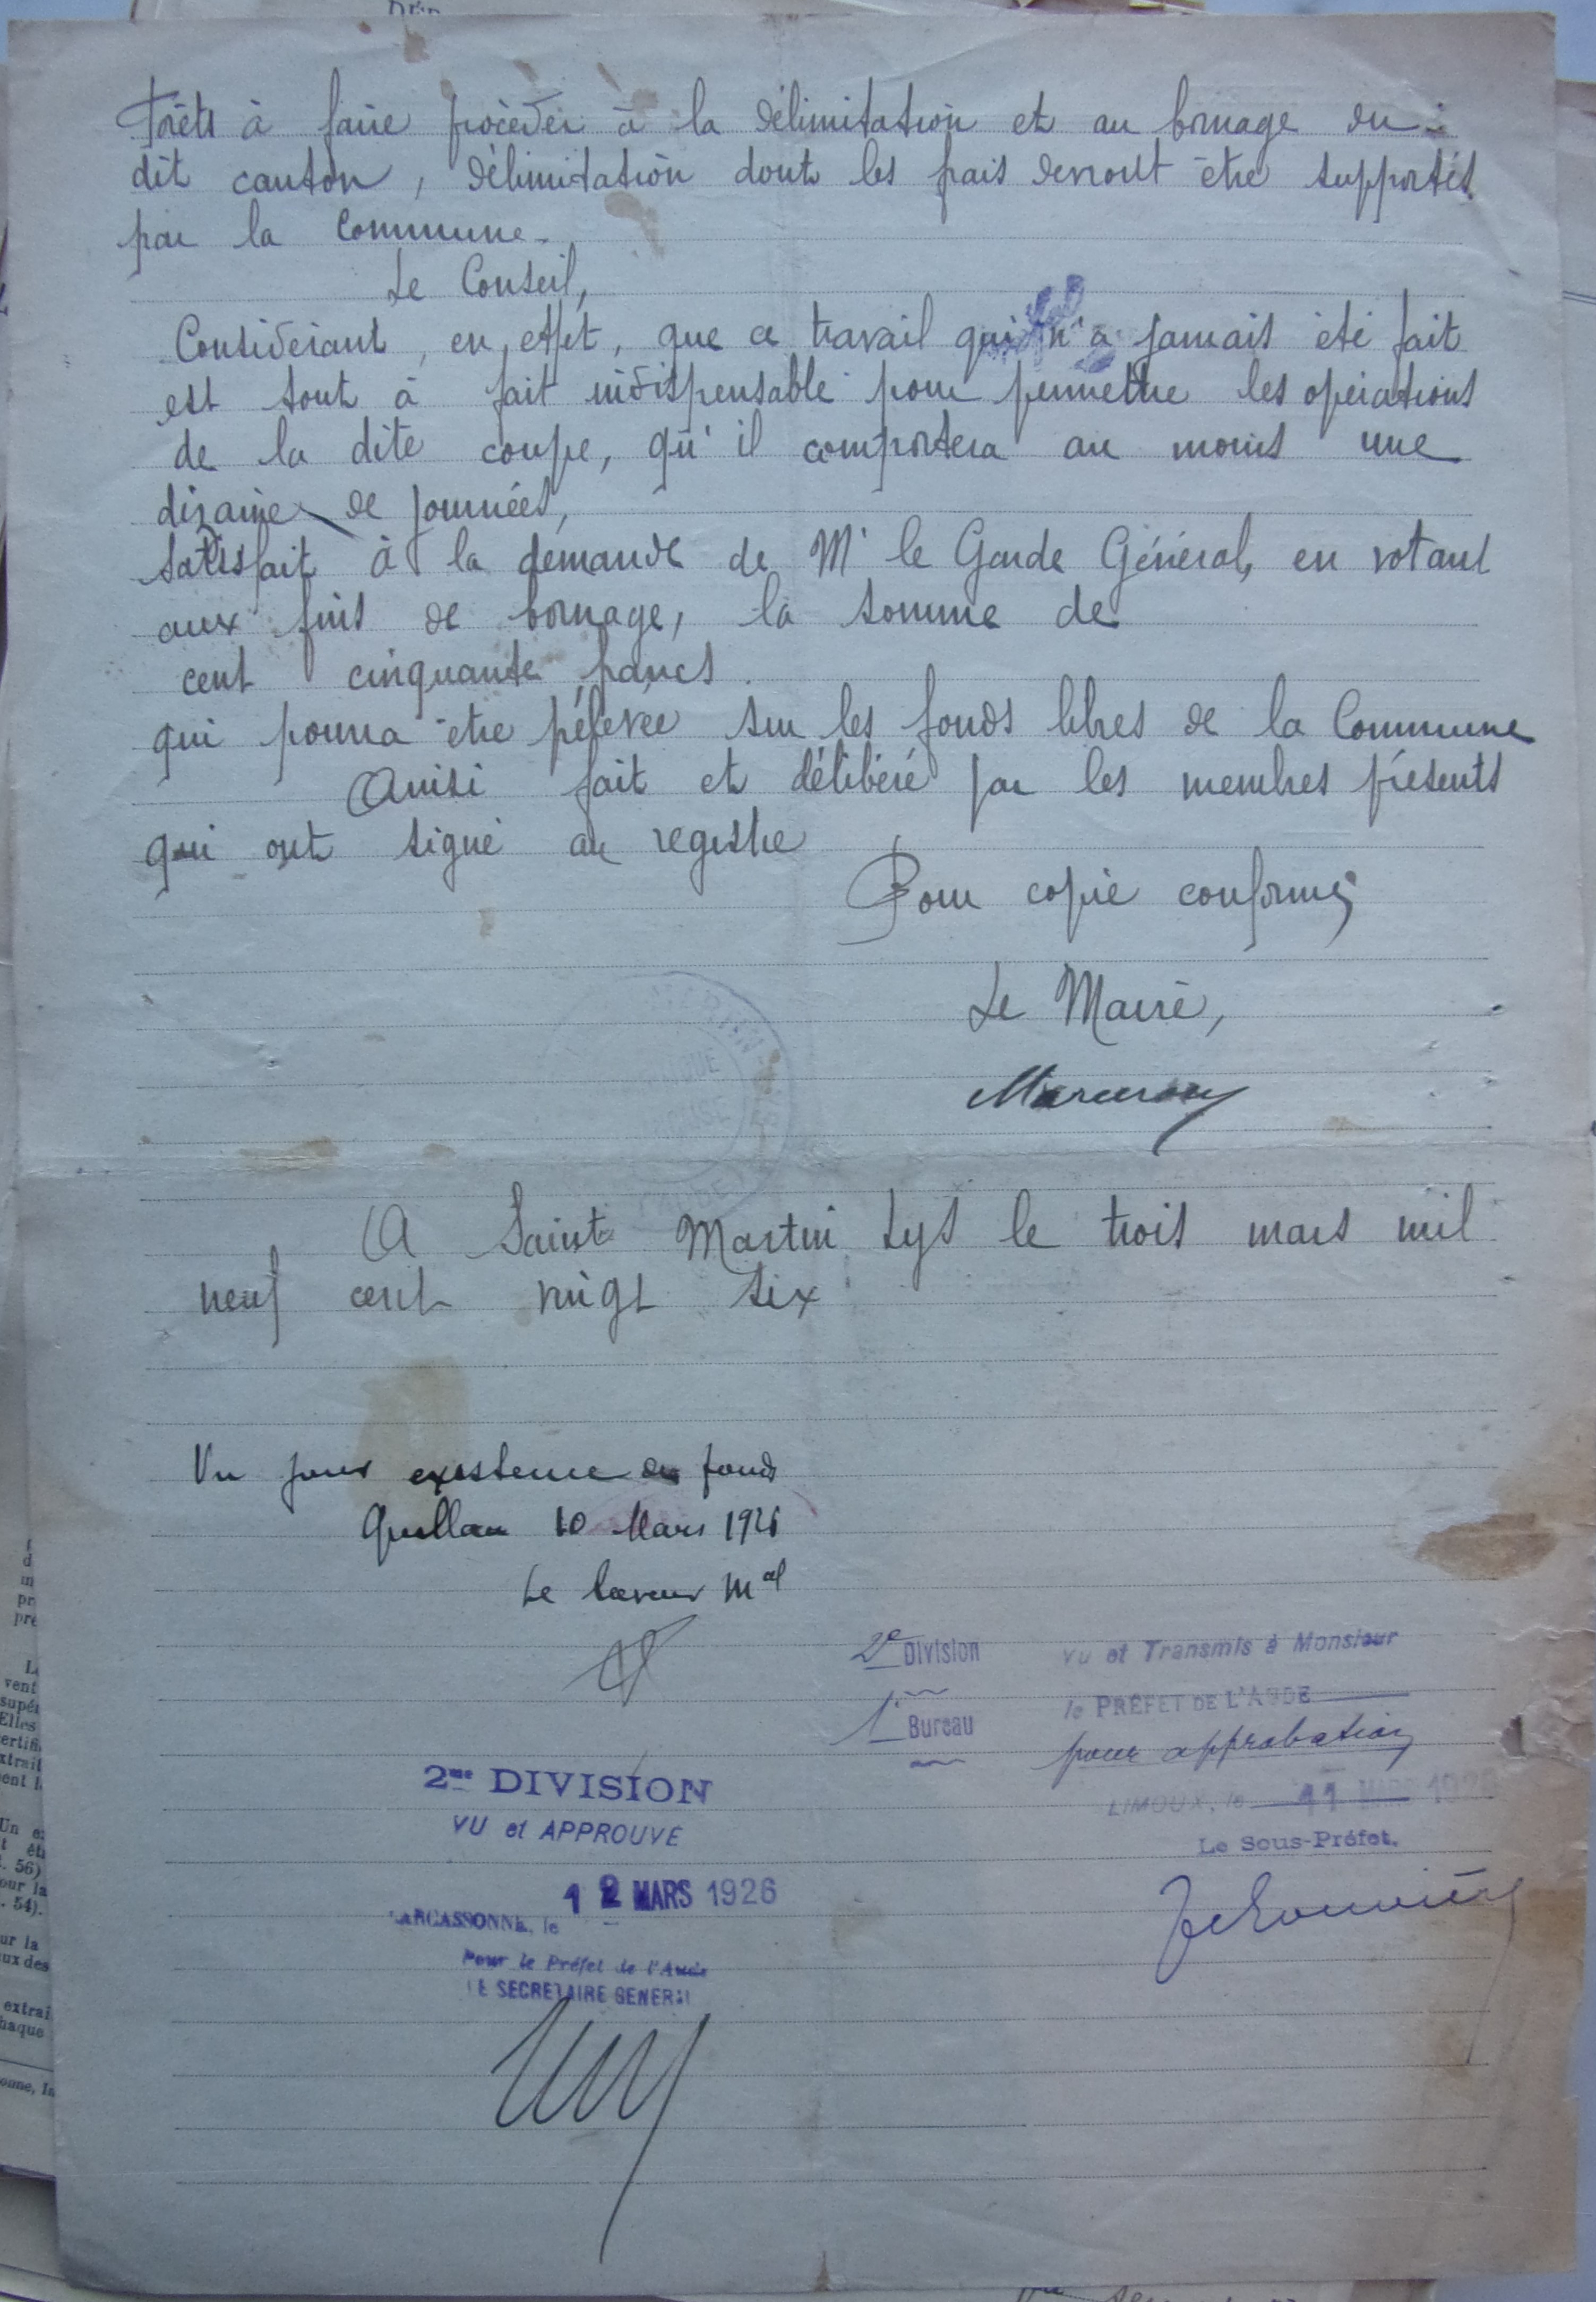 Forêts à faire procéder à la délimitation et au bornage du
dit canton, délimitation dont les frais devront être supportés
par la Commune.
Le Conseil,
Considérant, en effet, que ce travail qui n'a jamais été fait
est tout à fait indispensable pour permettre les opérations
de la dite coupe, qu'il comportera au moins une
dizaine de journées,
Satisfait à la demande de Mr le Garde Général, en votant
aux fins de bornage, la somme de
cent cinquante francs.
qui pourra être prélevée sur les fonds libres de la Commune
Ainsi fait et délibéré par les membres présents
qui ont signé au registre
Pour copie conforme,
Le Maire,
A Saint Martin Lys le trois mars mil
neuf cent vingt six
Vu pour existence de fonds
Quillan 10 Mars 1926
Le Mal
2e Division
1r Bureau
Vu et Transmis à Monsieur
le PREFET DE L'AUDE
pour approbation
LIMOUX, le 11 MARS 1926
Le Sous-Préfet.
2me DIVISION
VU et APPROUVÉ
12 MARS 1926
CARCASSONNE, le
Pour le Préfet de l'Aude
LE SECRETAIRE GENERAL